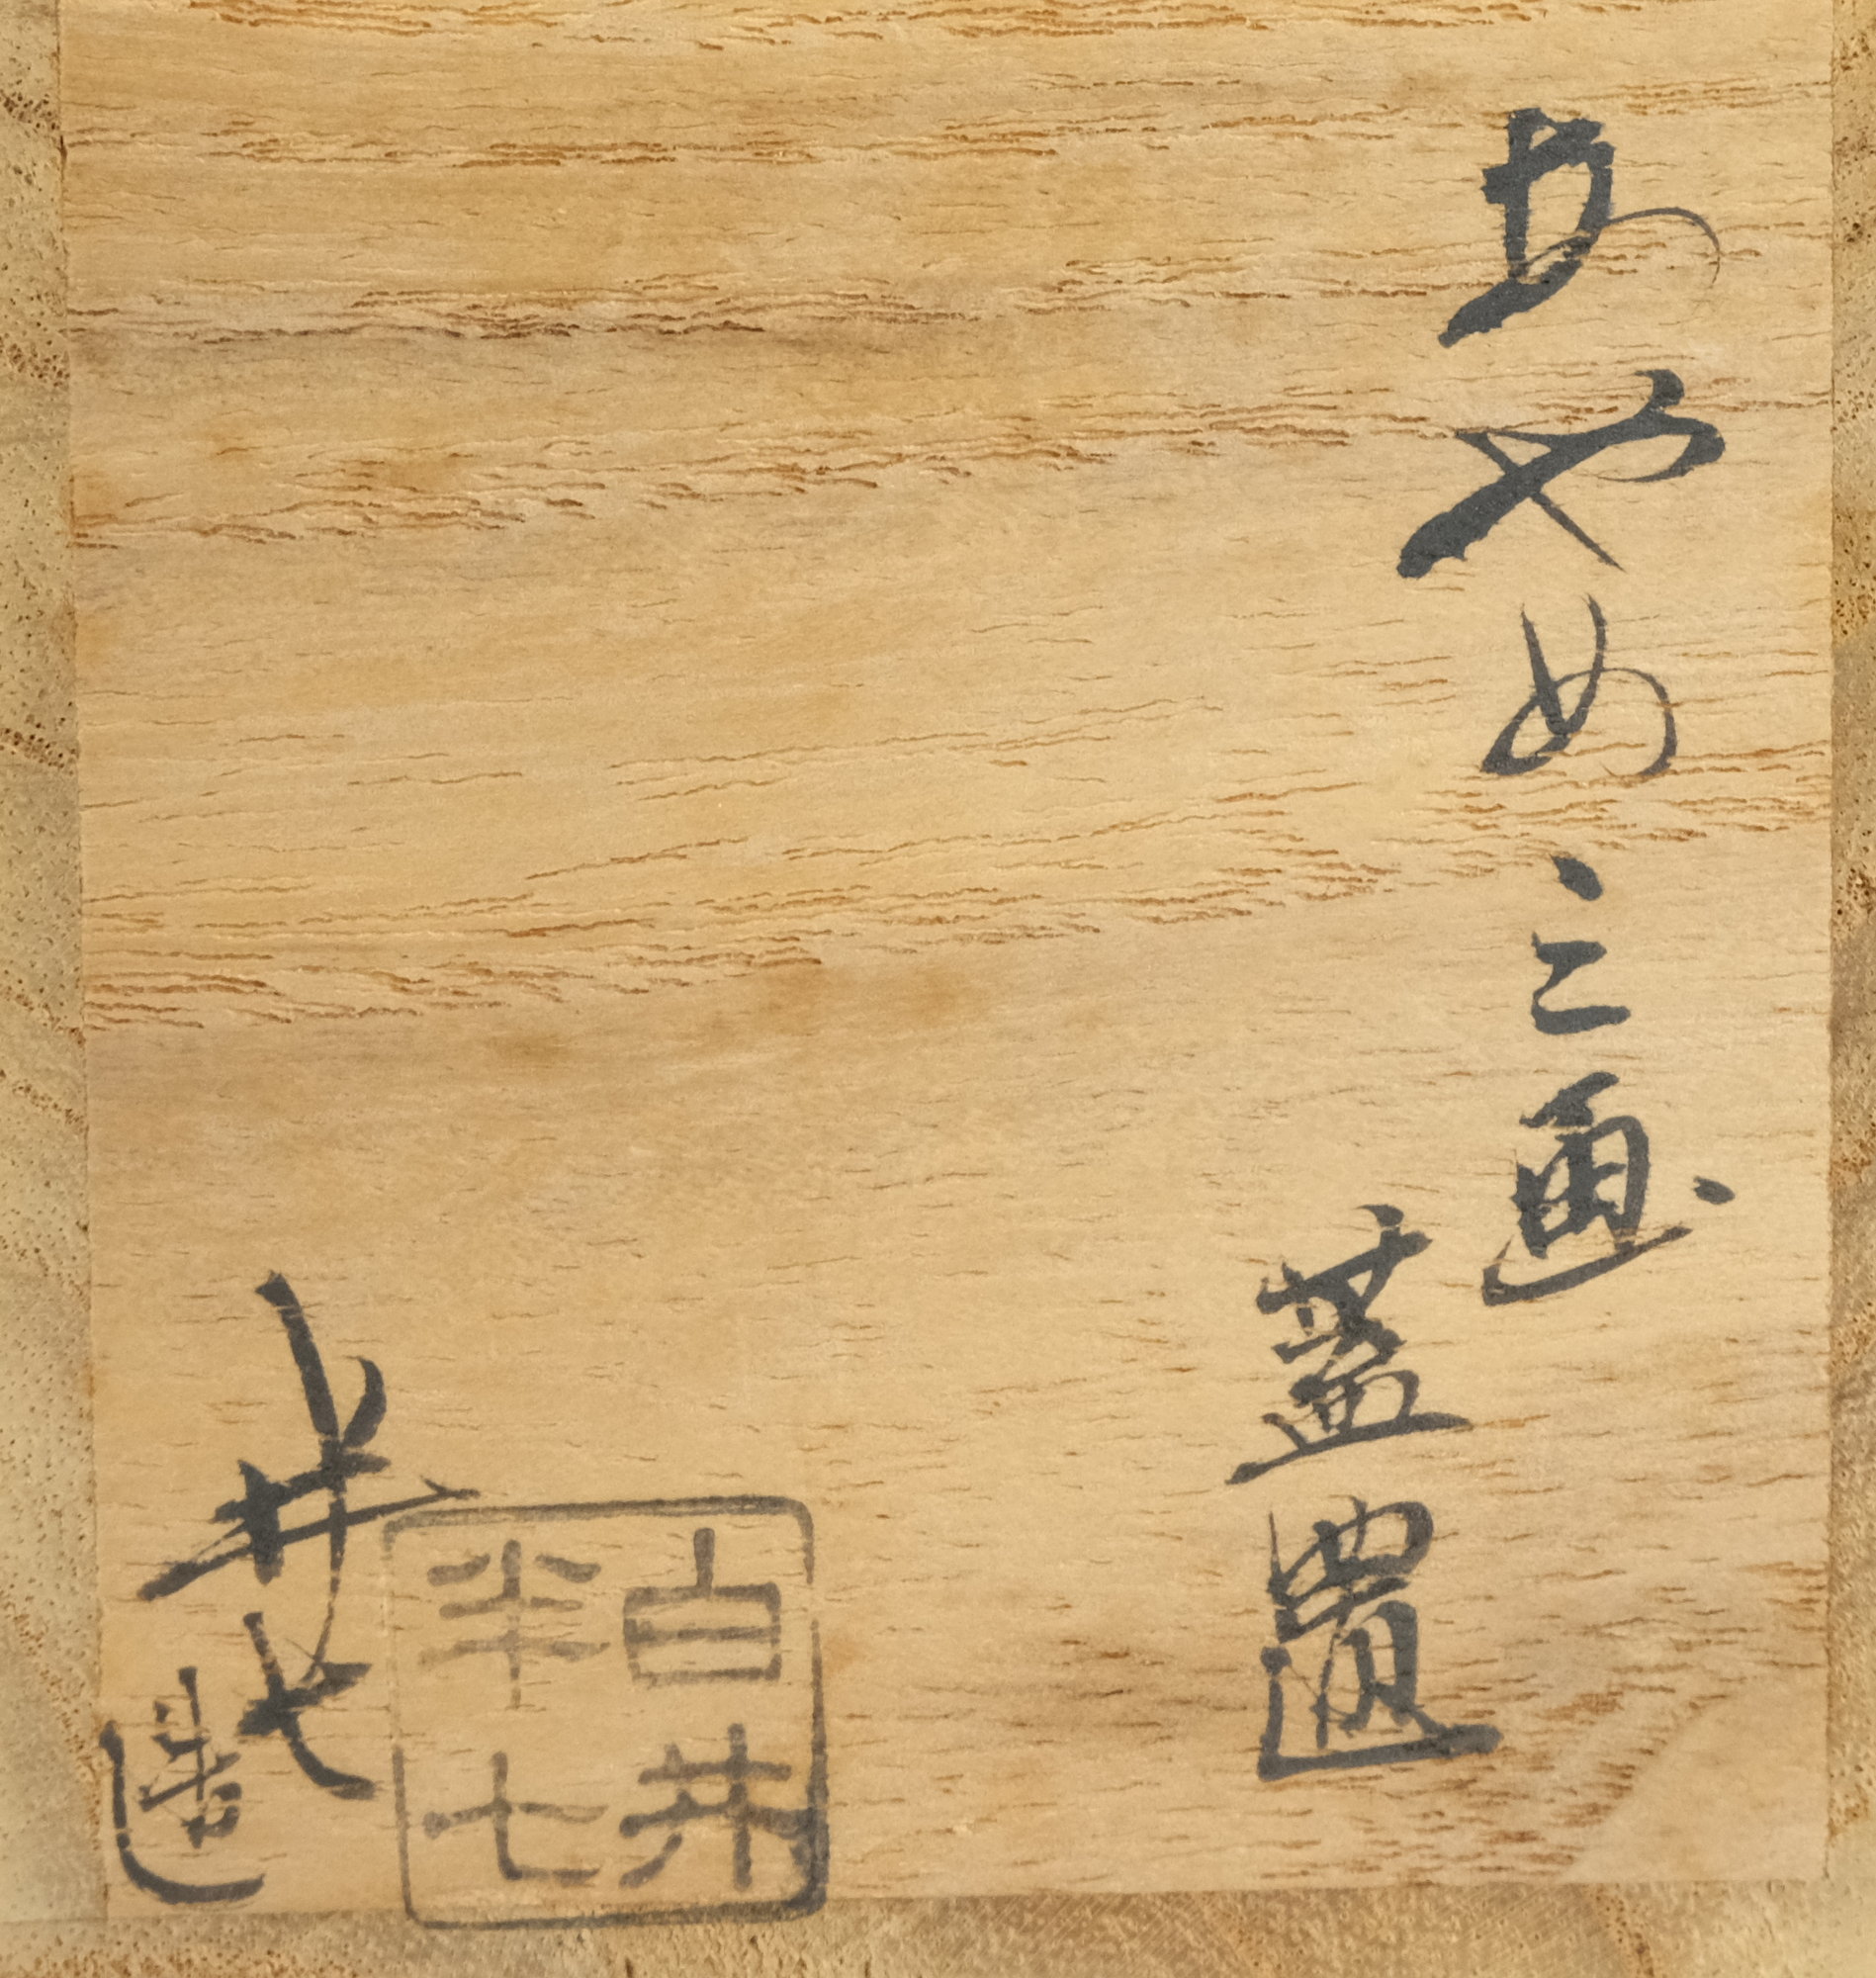 あやめ之画
蓋置
半七造
白井
半七